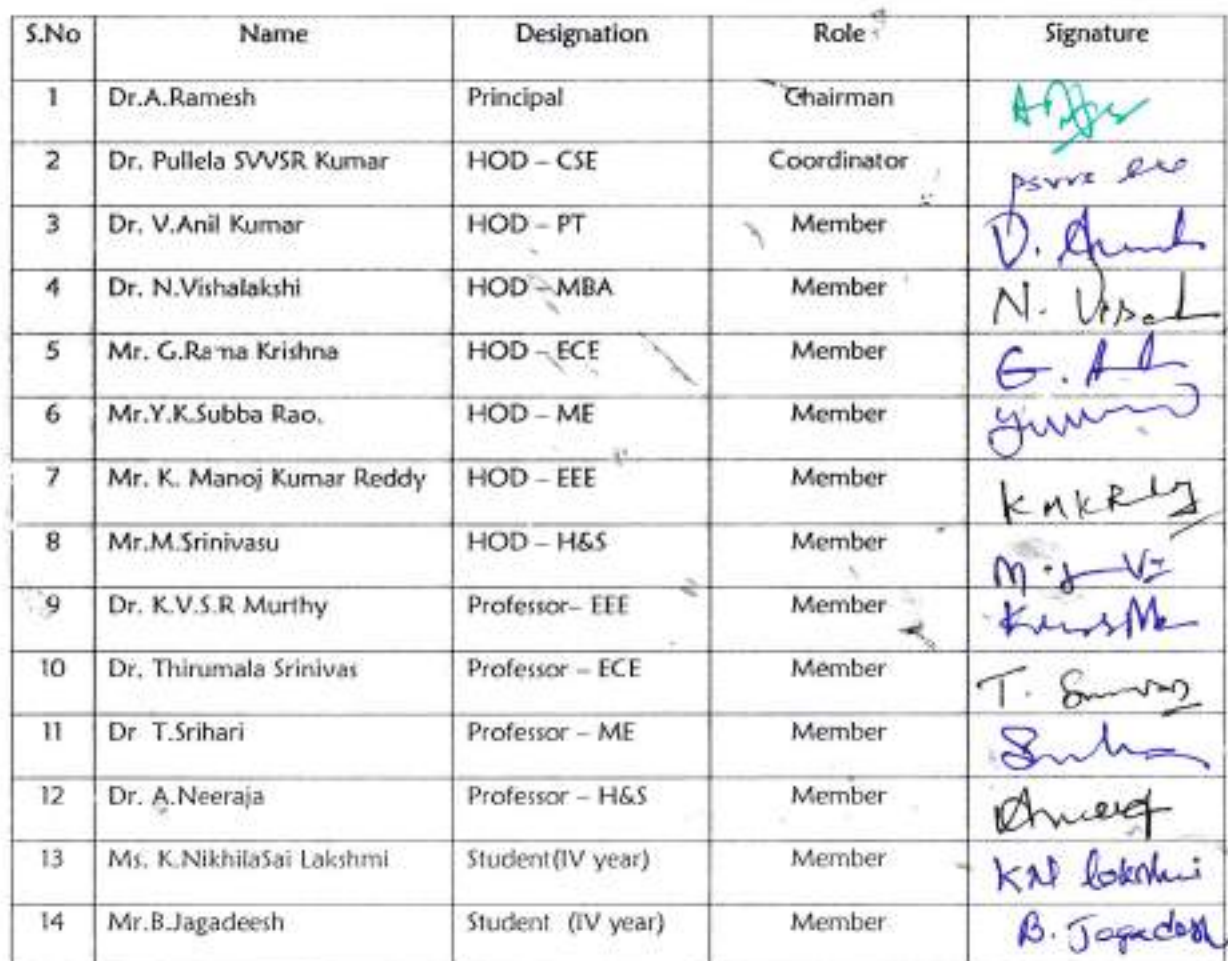 S.No Name Designation Role Signature
1 Dr.A.Ramesh Principal Chairman
2 Dr. Pullela SVVSR Kumar HOD – CSE Coordinator
3 Dr. V.Anil Kumar HOD – PT Member
4 Dr. N.Vishalakshi HOD – MBA Member N.
5 Mr. G.Rama Krishna HOD – ECE Member G.
6 Mr.Y.K.Subba Rao. HOD – ME Member
7 Mr. K. Manoj Kumar Reddy HOD – EEE Member
8 Mr.M.Srinivasu HOD – H&S Member
9 Dr. K.V.S.R Murthy Professor– EEE Member
10 Dr. Thirumala Srinivas Professor – ECE Member T.
11 Dr T.Srihari Professor – ME Member
12 Dr. A.Neeraja Professor – H&S Member
13 Ms. K.NikhilaSai Lakshmi Student(IV year) Member
14 Mr.B.Jagadeesh Student (IV year) Member B. Jagadesh